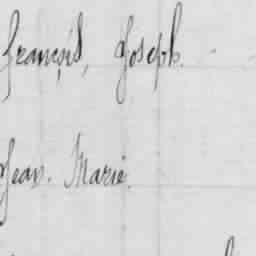 François, Joseph.
Jean. Marie.